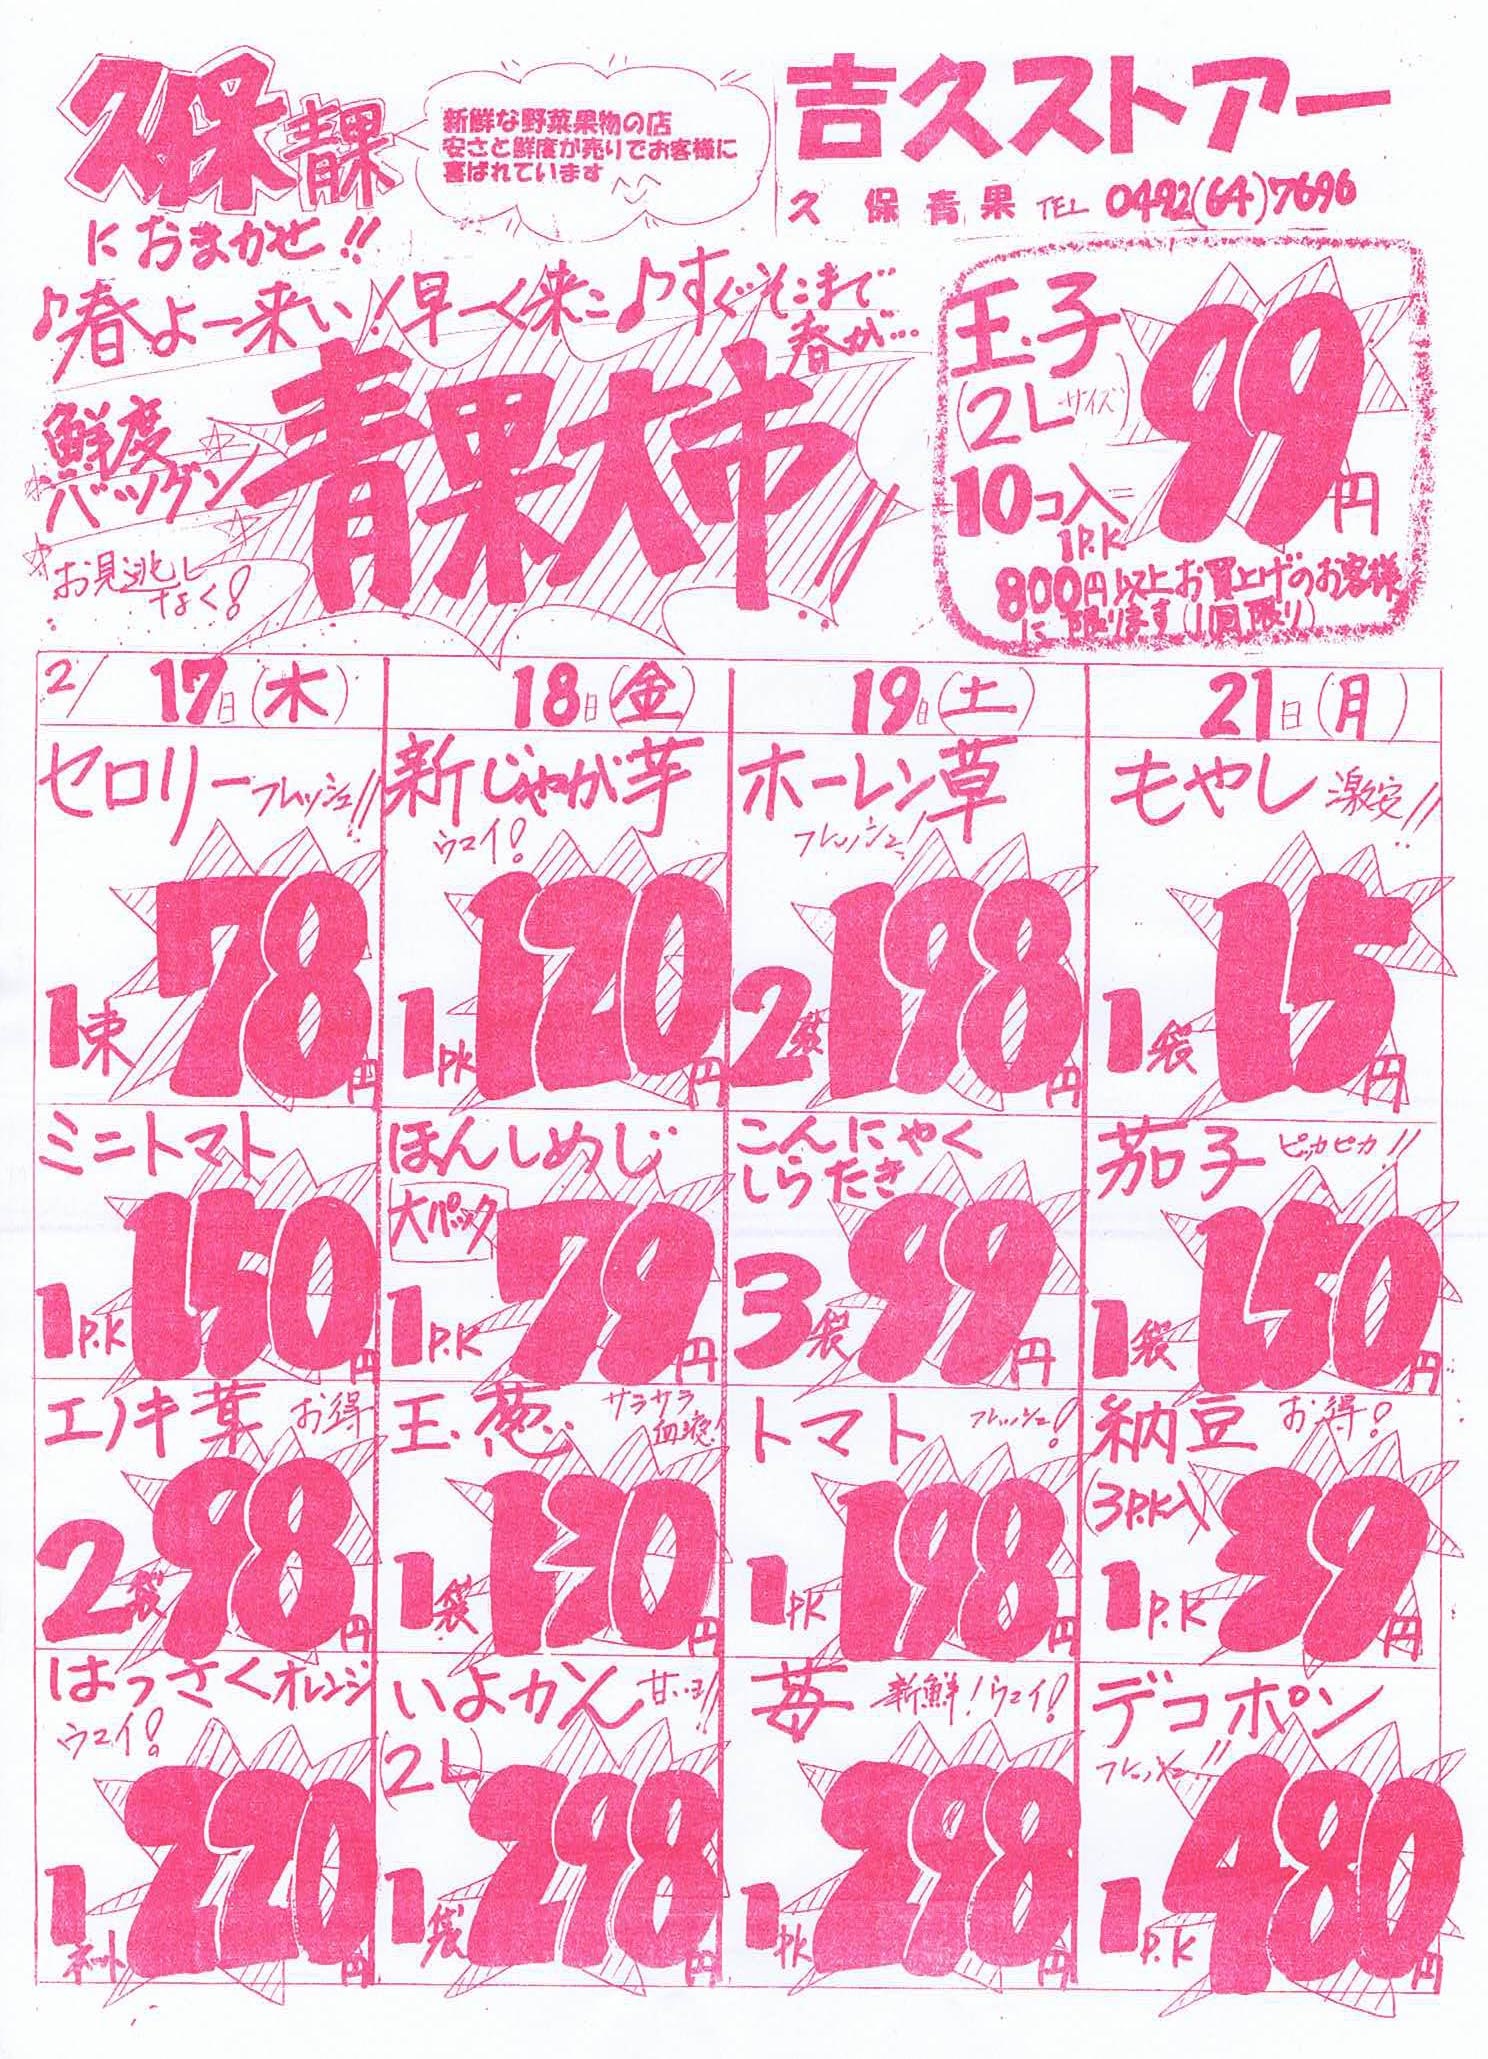 久保青果
におまかせ!!
新鮮な野菜果物の店
安さと鮮度が売りでお客様に
喜ばれています
吉久ストアー
久保青果 TEL 0492(64)7696
♪春よー来い!早ーく来こ♪すぐそこまで
春が…
鮮度
バツグン
青果大市!!
お見逃し
なく!
玉子
(2Lサイズ)
10コ入=99円
1P.K
800円以上お買上げのお客様
に限ります(1回限り)
2/17日(木) 18日(金) 19日(土) 21日(月)
セロリー フレッシュ!!
1束 78円
新じゃが芋
ウマイ!
1PK 120円
ホーレン草
フレッシュ!
2袋 198円
もやし 激安!!
1袋 15円
ミニトマト
1P.K 150円
ほんしめじ
大パック
1P.K 79円
こんにゃく
しらたき
3袋 99円
茄子 ピッカピカ!!
1袋 150円
エノキ茸 お得
2袋 98円
玉葱 サラサラ
血液!
1袋 130円
トマト フレッシュ!
1PK 198円
納豆 お得!
(3P.K入)
1P.K 39円
はっさくオレンジ
ウマイ!
1ネット 220円
いよかん 甘いヨ!!
(2L)
1袋 298円
苺 新鮮!ウマイ!
1PK 298円
デコポン
フレッシュ!!
1P.K 480円